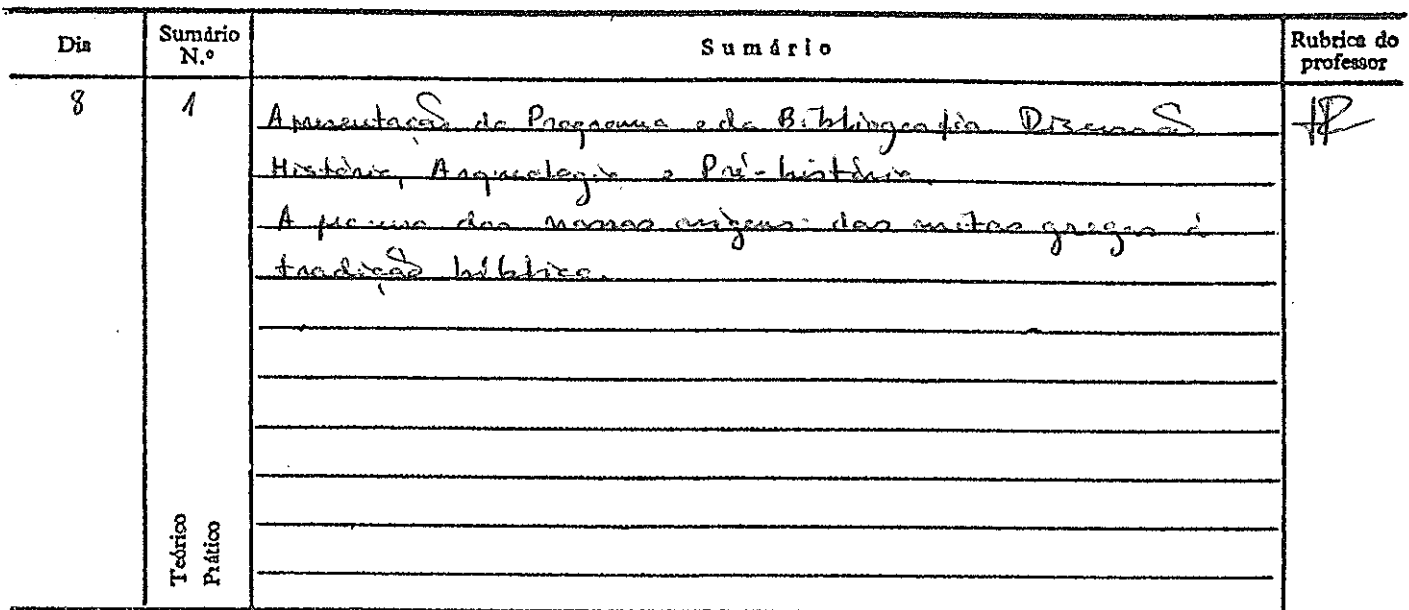 Dia
Sumário N.º
Sumário
Rubrica do professor
8
1
Apresentação do Programa e da Bibliografia. Discussão
História, Arqueologia e Pré-história.
A procura das nossas origens: dos mitos gregos à
tradição bíblica.
Teórico
Prático